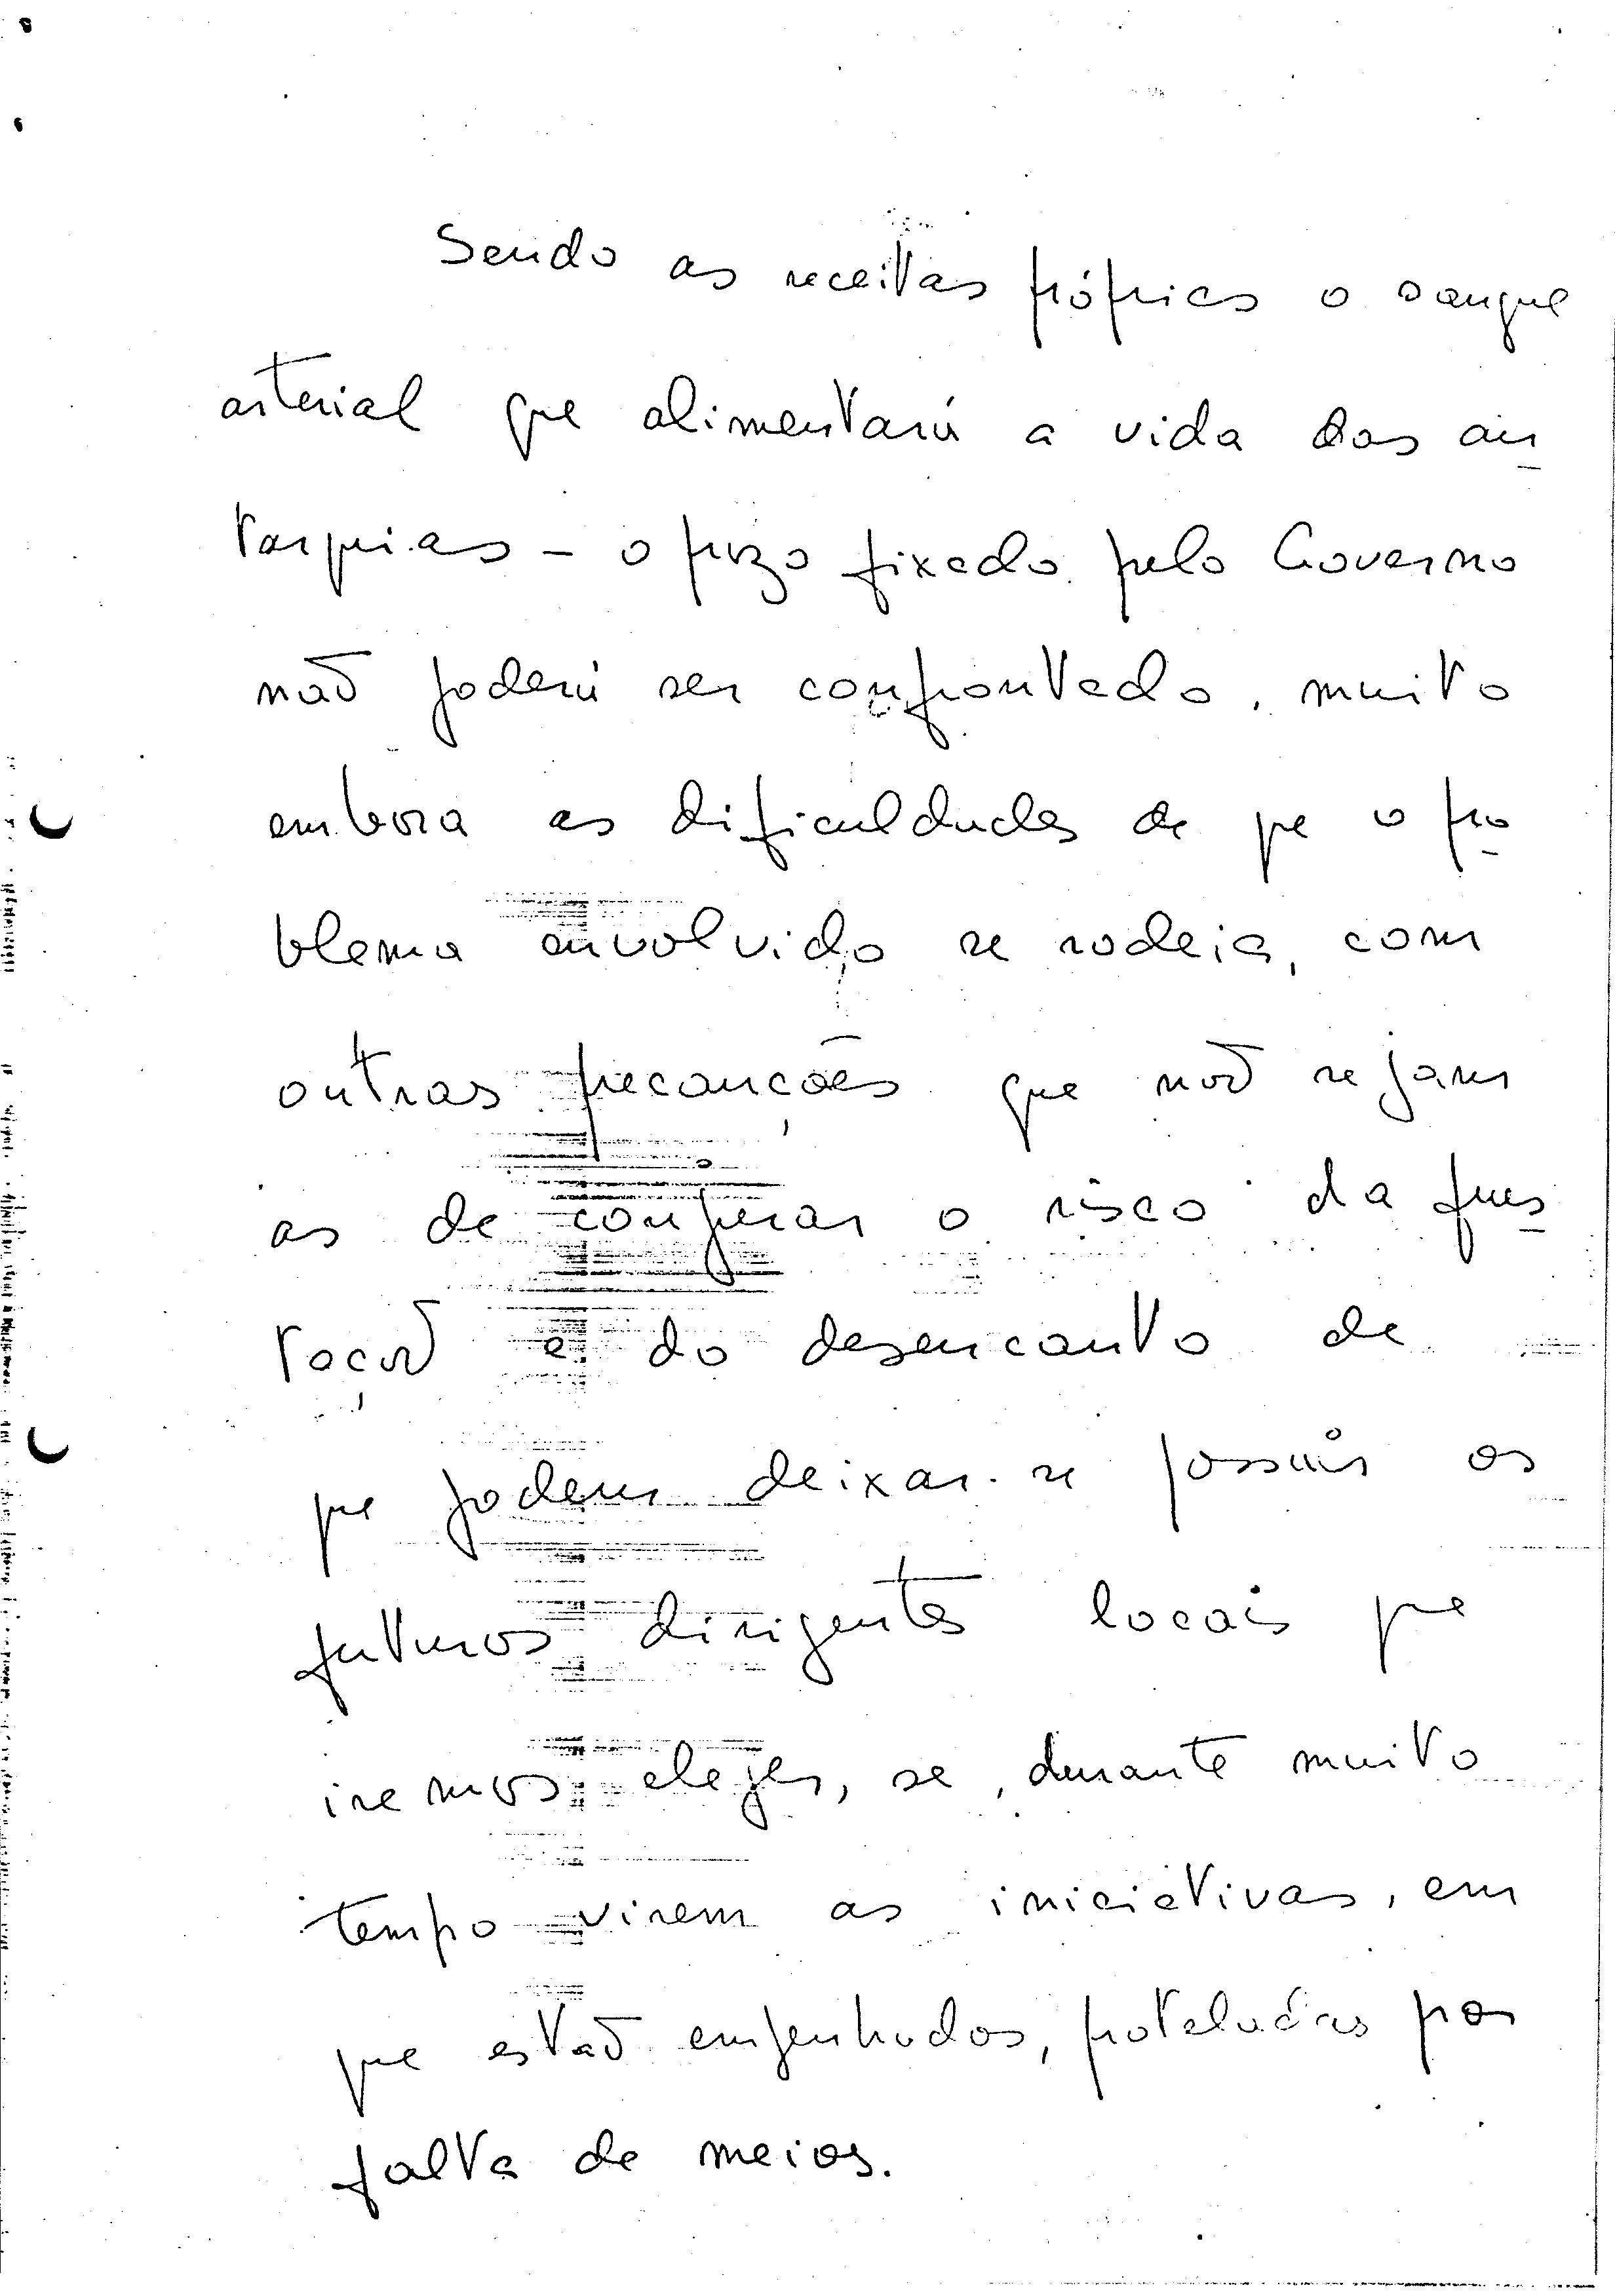 Sendo as receitas próprias o sangue
arterial que alimentará a vida das au
tarquias - o prazo fixado pelo Governo
não poderá ser confrontado, muito
embora as dificuldades de que o pro
blema envolvido se rodeia, com
outras precauções que não sejam
as de conjurar o risco da frus
tração e do desencanto de
que podem deixar-se possuir os
futuros dirigentes locais que
iremos eleger, se, durante muito
tempo virem as iniciativas, em
que estão empenhados, proteladas por
falta de meios.